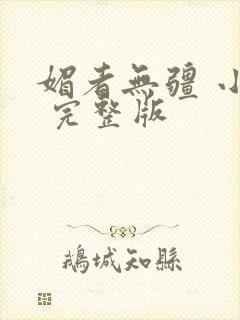 媚者無疆 小
完整版
鵝城知縣